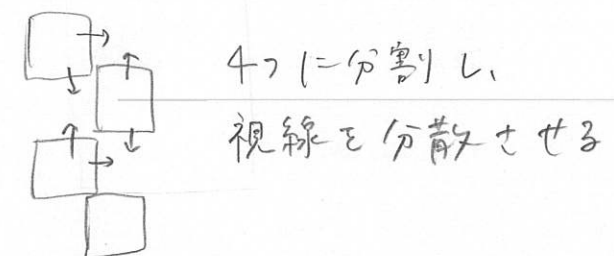 4つに分割し、
視線を分散させる